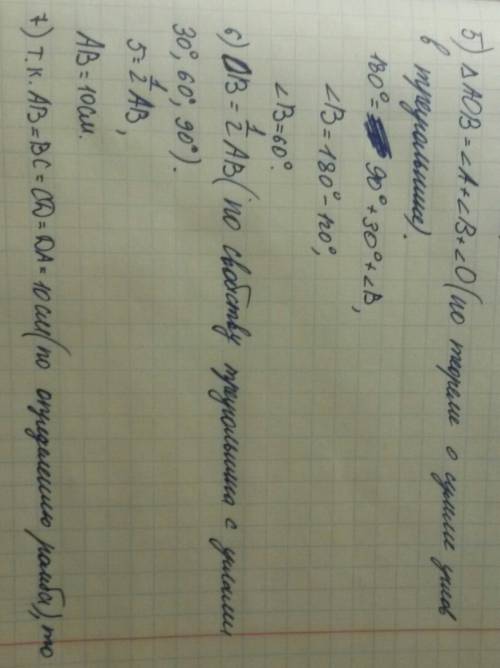 5) △AOB = ∠A + ∠B + ∠O (по теореме о сумме углов
в треугольнике).
180° = 90° + 30° + ∠B,
∠B = 180° - 120°,
∠B = 60°.
6) OB = 1/2 AB (по свойству треугольника с углами
30°, 60°, 90°).
5 = 1/2 AB,
AB = 10 см.
7) т.к. AB = BC = CD = DA = 10 см (по определению ромба), то